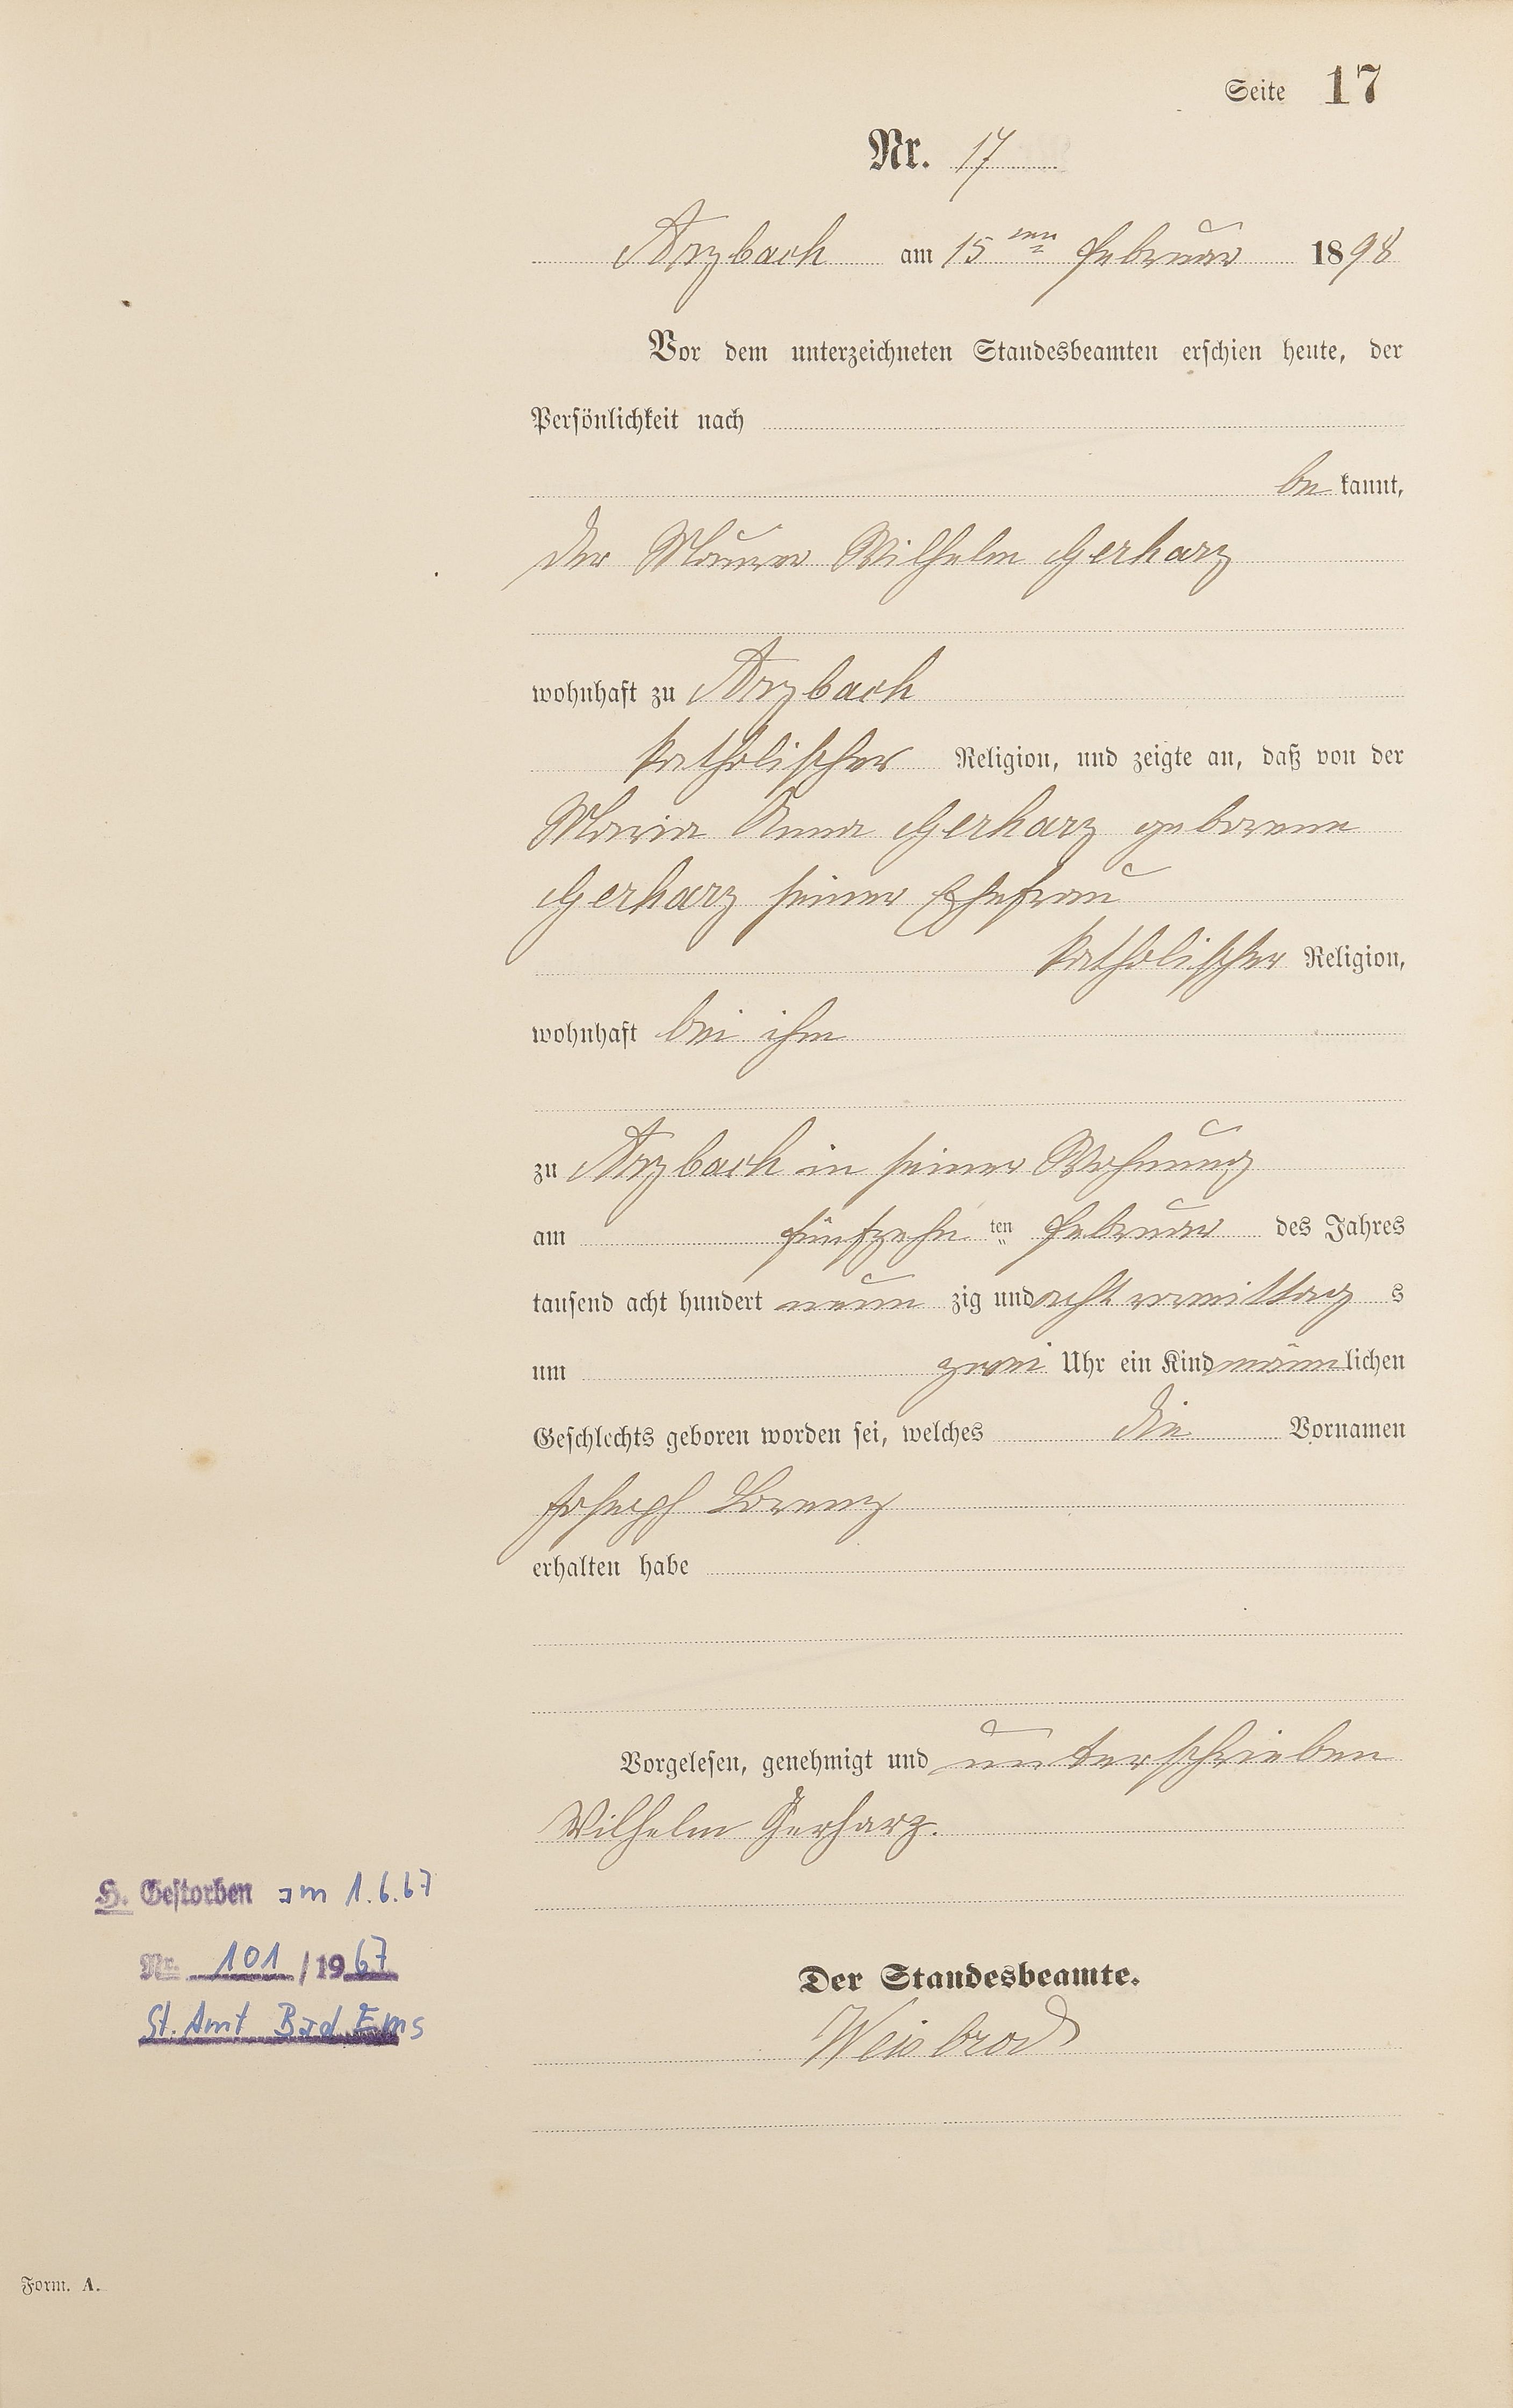 Seite 17
Nr. 17
Arzbach am 15ten Februar 1898
Vor dem unterzeichneten Standesbeamten erschien heute, der
Persönlichkeit nach
bekannt,
der Maurer Wilhelm Gerharz
wohnhaft zu Arzbach
katholischer Religion, und zeigte an, daß von der
Maria Anna Gerharz geborene
Gerharz seiner Ehefrau
katholischer Religion,
wohnhaft bei ihm
zu Arzbach in seiner Wohnung
am fünfzehnten Februar des Jahres
tausend acht hundert neunzig und acht vormittags
um zwei Uhr ein Kind männlichen
Geschlechts geboren worden sei, welches die Vornamen
Joseph Lorenz
erhalten habe
Vorgelesen, genehmigt und unterschrieben
Wilhelm Gerharz.
H. Gestorben am 1.6.67
Nr. 101/1967
St. Amt Bad Ems
Der Standesbeamte.
Weisbrod
Form. A.